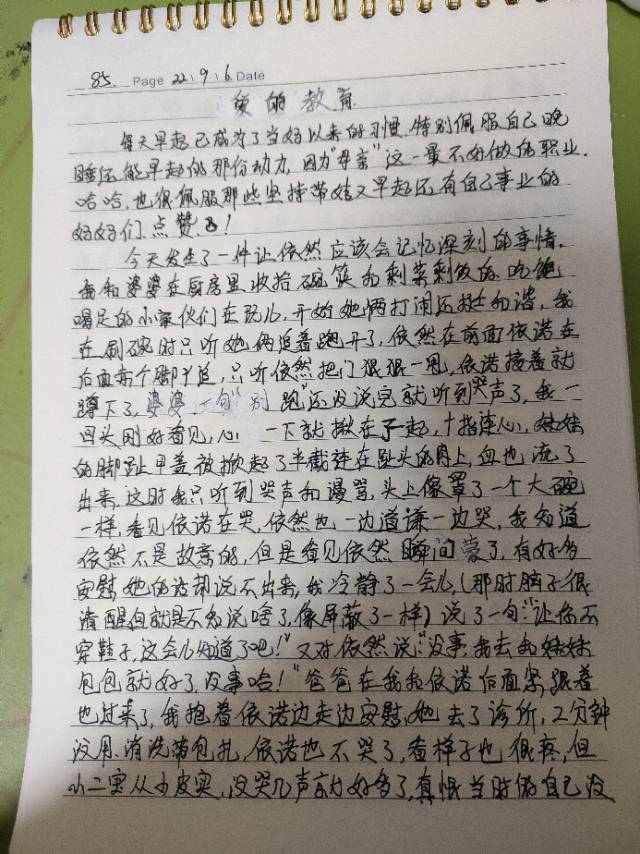 85. Page 22.9.6 Date
爱的教育
每天早起已成为了当妈以来的习惯，特别佩服自己晚
睡还能早起的那份动力，因为“母亲”这一最不好做的职业，
哈哈，也很佩服那些坚持带娃又早起还有自己事业的
妈妈们，点赞！
今天发生了一件让依然应该会记忆深刻的事情，
我和婆婆在厨房里收拾碗筷和剩菜剩饭的，吃饱
喝足的小家伙们在玩儿，开始她俩打闹还挺和谐，我
在刷碗时只听她俩追着跑开了，依然在前面依诺在
后面两个脚丫追，只听依然把门狠狠一甩，依诺接着就
蹲下了，婆婆一句“别跑”还没说完就听到哭声了，我一
回头刚好看见，心一下就揪在了一起，十指连心，妹妹
的脚趾甲盖被掀起了半截连在趾头的肉上，血也流了
出来，这时我只听到哭声和谩骂，头上像罩了一个大碗
一样，看见依诺在哭，依然也一边道谦一边哭，我知道
依然不是故意的，但是看见依然瞬间蒙了，有好多
安慰她的话却说不出来，我冷静了一会儿，（那时脑子很
清醒但就是不知说啥了，像屏蔽了一样）说了一句：“让你不
穿鞋子，这会儿知道了吧！”又对依然说：“没事，我去和妹妹
包包就好了，没事哈！”爸爸在我抱依诺后面紧跟着
也过来了，我抱着依诺边走边安慰，她去了诊所，2分钟
没用，消洗带包扎，依诺也不哭了，看样子也很疼，但
小二宝从小皮实，没哭几声就好多了，真恨当时做自己没